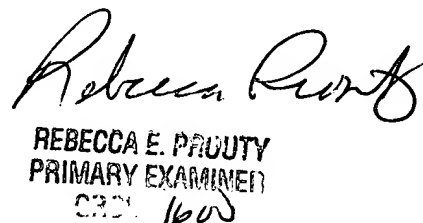 Rebecca Prouty
REBECCA E. PROUTY
PRIMARY EXAMINER
1600